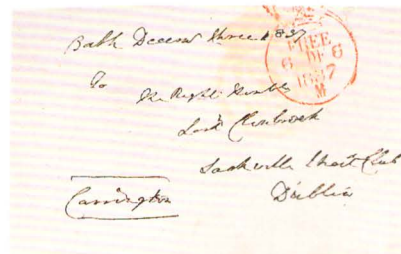 Bath December three 1837
FREE
6 DE 6
1837
M
To
The Right Honble
Lord Clonbrock
Sackville Street Club
Dublin
Carrington